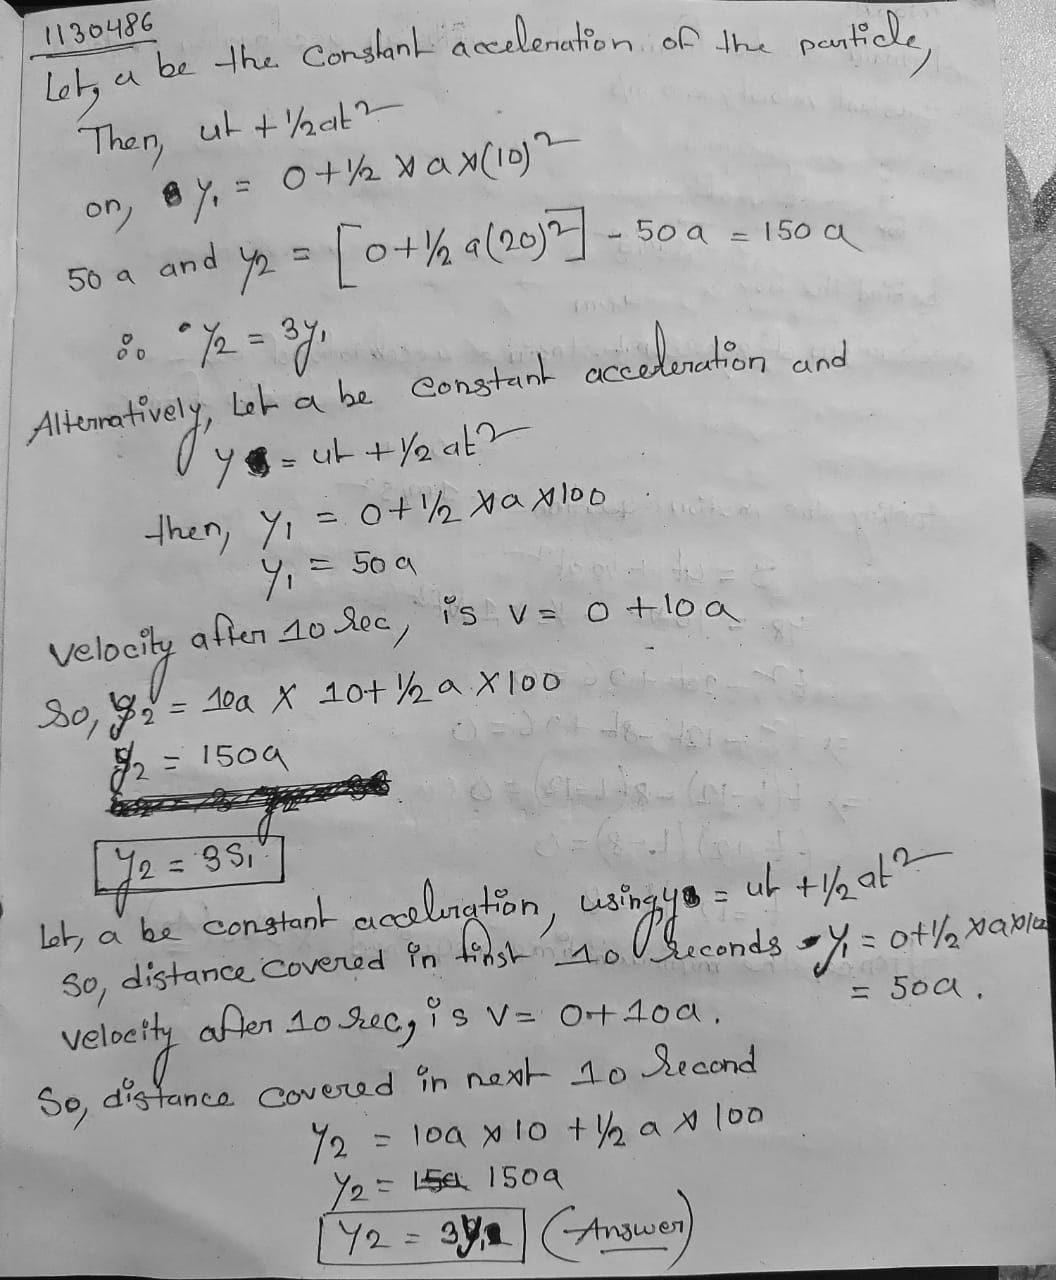 1130486
Let, a be the Constant acceleration of the particle,
Then, ut + 1/2at2
or, y1 = 0 + 1/2 x a x (10)2
50 a and y2 = [0+1/2 a(20)2] - 50 a = 150 a
∴ y2 = 3y1
Alternatively, Let a be constant acceleration and
y = ut + 1/2 at2
then, y1 = 0 + 1/2 x a x 100
y1 = 50 a
velocity after 10 Sec, is v = 0 + 10 a
So, y2 = 10a x 10 + 1/2 a x 100
y2 = 150a
y2 = 3S1
Let, a be constant acceleration, using, y = ut + 1/2 at2
So, distance covered in first 10 Seconds - y1 = 0+1/2 x a x 10
= 50a.
velocity after 10 Sec, is v = 0 + 10a.
So, distance covered in next 10 Second
y2 = 10a x 10 + 1/2 a x 100
y2 = 150a
y2 = 3y1 (Answer)